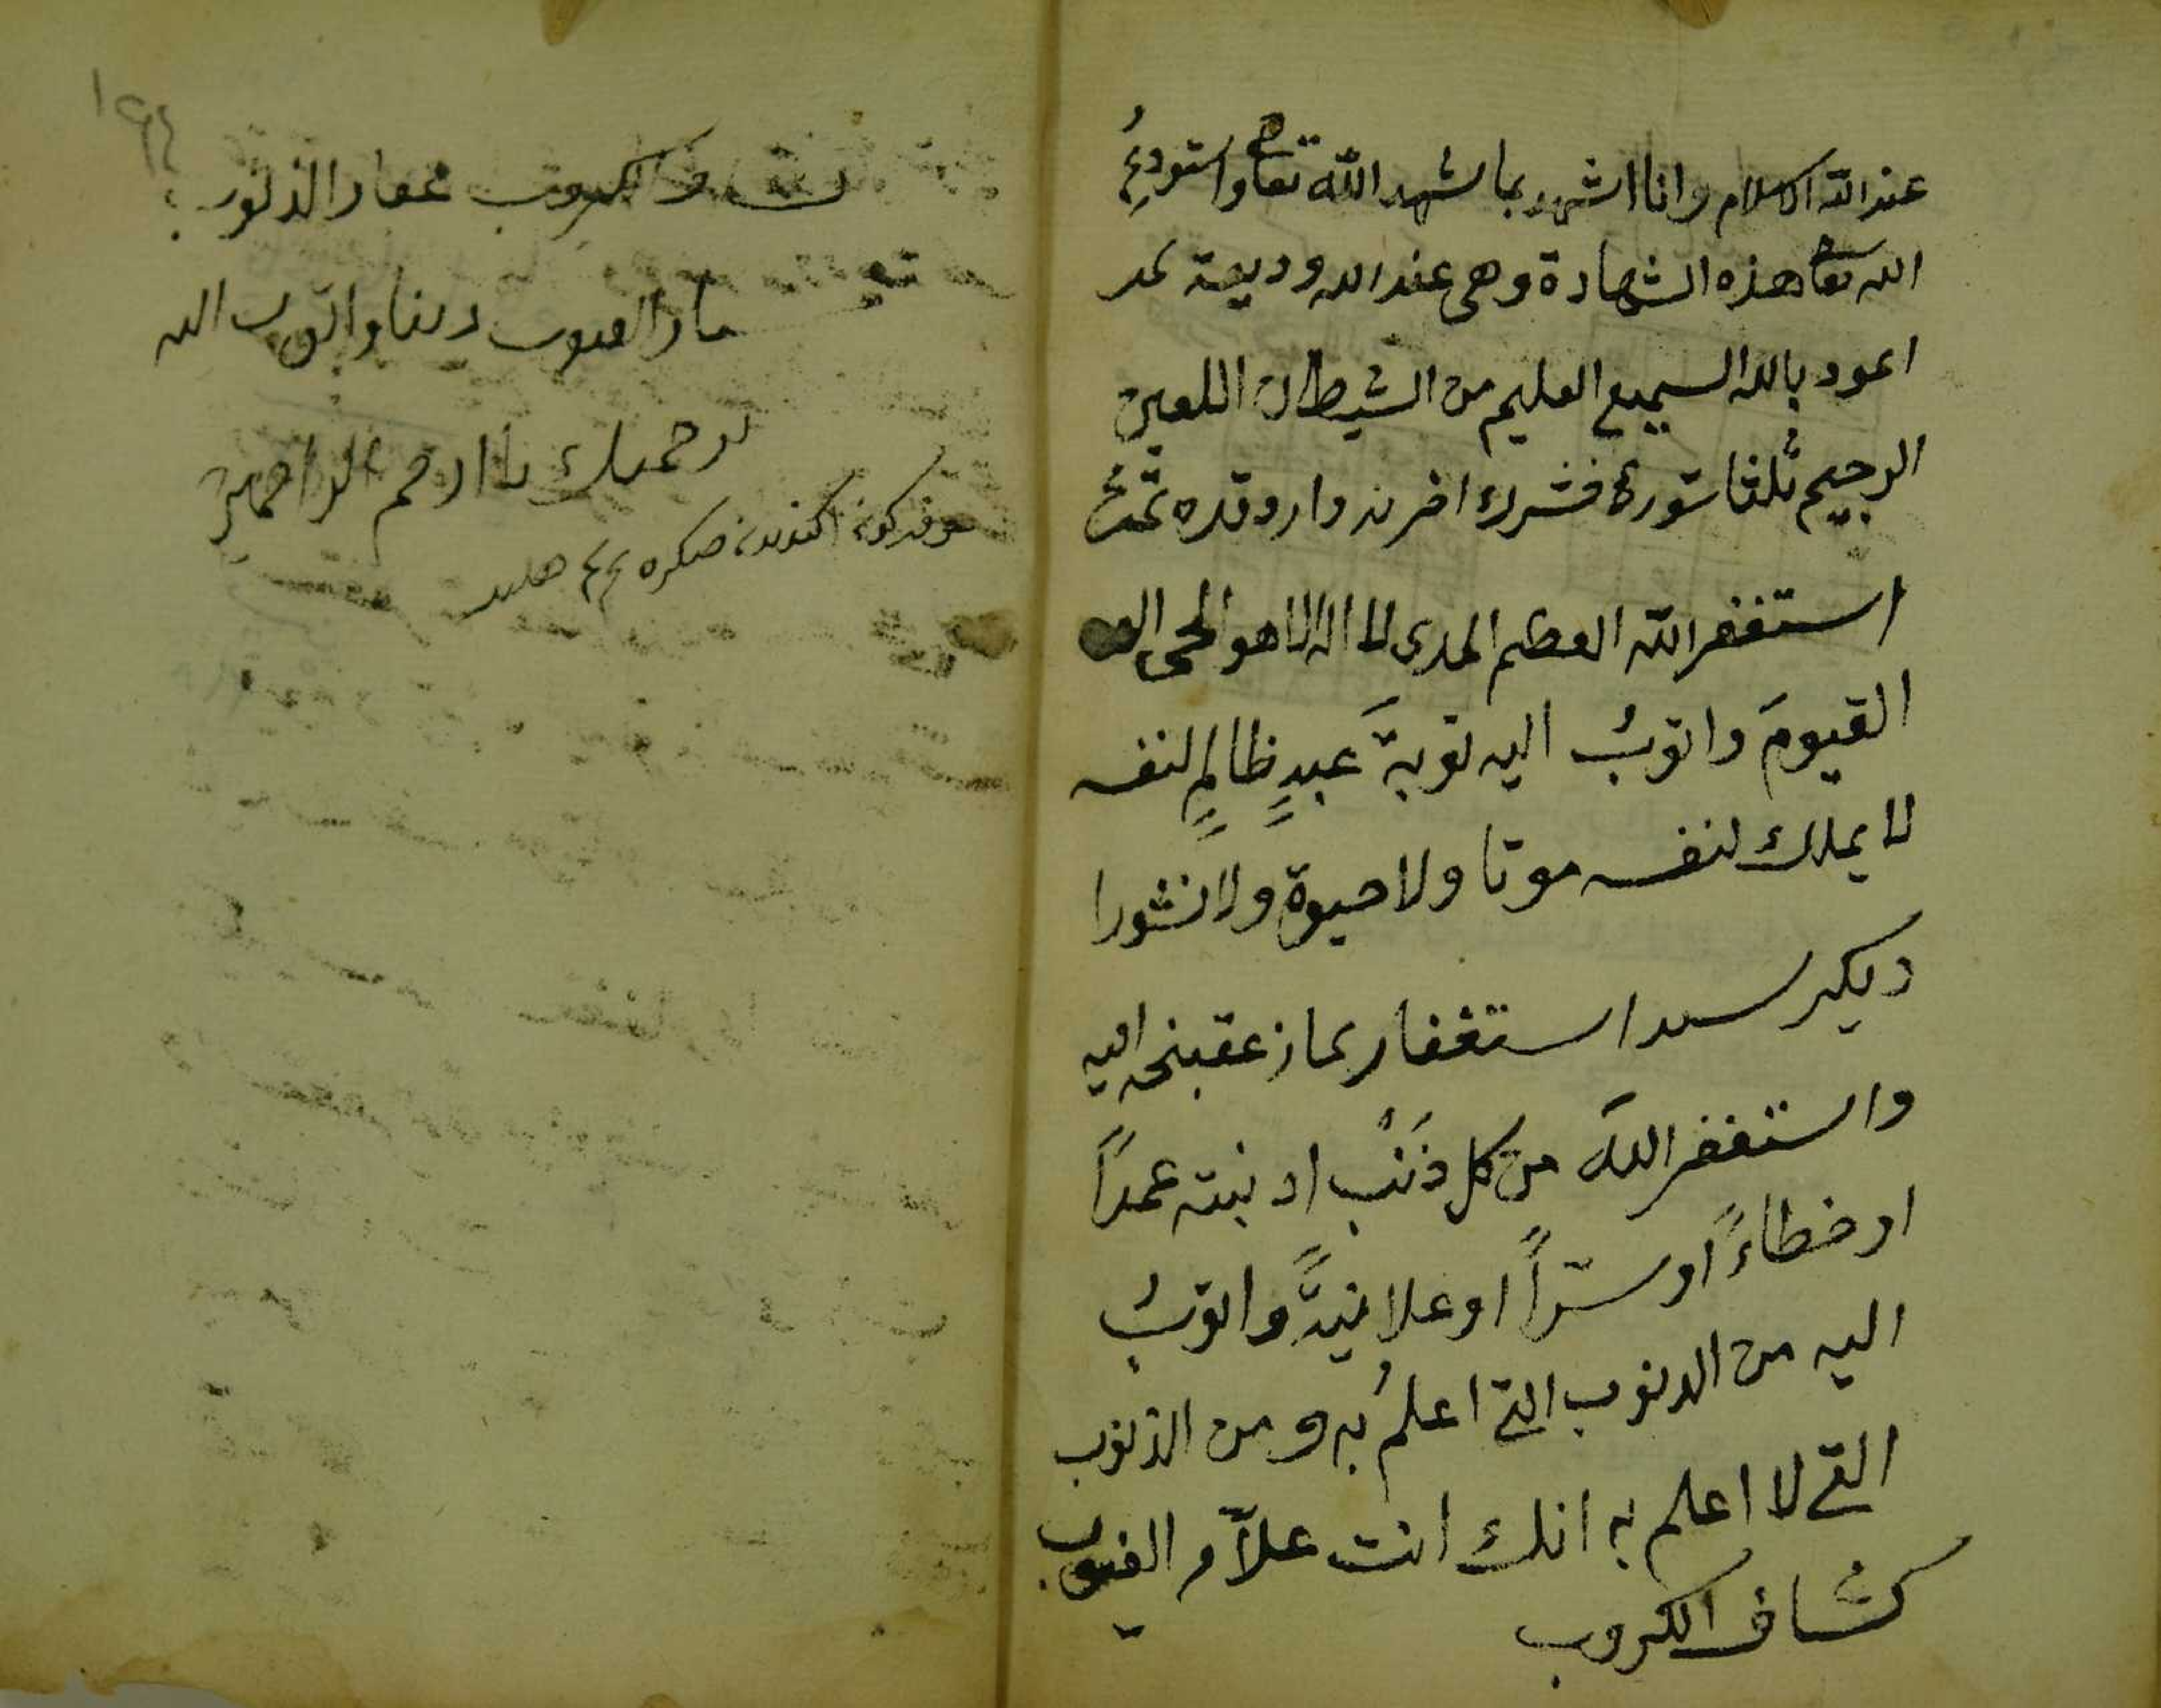 عند الله الاسلام وانا اشهد بما شهد الله تعا واستودعُ
الله تعا هذه الشهادة وهى عند الله وديعة
اعود بالله السميع العليم من الشيطان اللعين
الرجيم ثلثا سورهٔ حشرك اخرنه وارو قدره
استغفر الله العظيم الدى لا اله الا هو الحى
القيومَ واتوبُ اليه توبةَ عبدٍ ظالمٍ لنفسه
لا يملك لنفسه موتا ولا حيوة ولا نشورا
ديكر سيد استغفار نماز عقبنجه
واستغفر اللهَ من كل ذَنْب ادنبته عمداً
او خطاءً او سرّاً او علانيةً واتوبُ
اليه من الدنوب التى اعلمُ به ومن الذنوب
التى لا اعلم به انك انت علاّم الغيوب
كشاف الكروب
١٩٤
الكروب غفار الذنوب
ستار العيوب ربنا واتوب اليه
برحمتك يا ارحم الراحمين